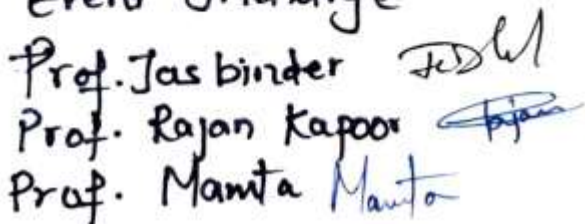 Prof. Jasbinder
Prof. Rajan Kapoor Rajan
Prof. Mamta Mamta